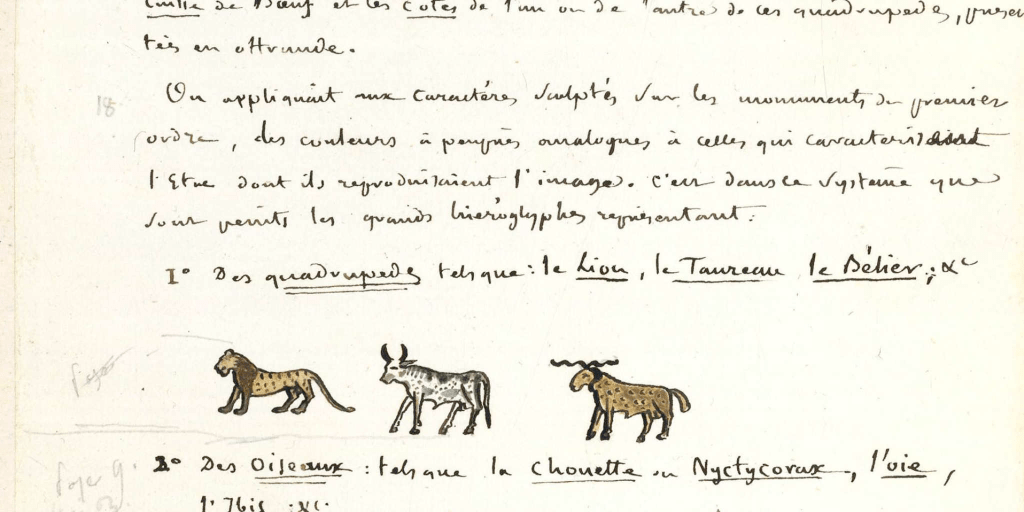 Cuisse de Bœuf et les Côtes de l'un ou de l'autre de ces quadrupèdes, présen
tées en offrande.
18
On appliquait aux Caractéres sculptés sur les monuments du premier
ordre, des couleurs à peuprès analogues à celles qui caracterisaient
l'Etre dont ils reproduisaient l'image. C'est dans ce système que
sont peints les grands hieroglyphes représentant:
1° Des quadrupèdes tels que: le Lion, le Taureau, le Bélier; &c
2° Des Oiseaux: tels que la Chouette ou Nyctycorax, l'oie,
l'Ibis &c.